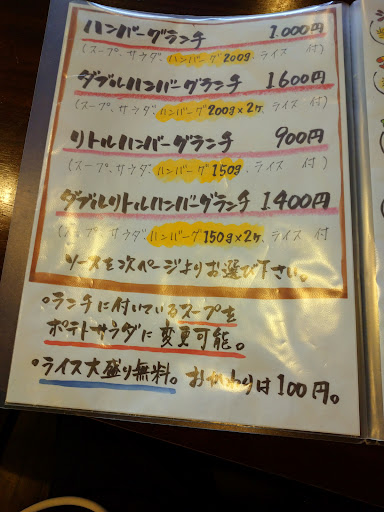 ハンバーグランチ 1.000円
(スープ、サラダ、ハンバーグ200g、ライス 付)
ダブルハンバーグランチ 1600円
(スープ、サラダ、ハンバーグ200g×2ケ、ライス 付)
リトルハンバーグランチ 900円
(スープ、サラダ、ハンバーグ150g、ライス 付)
ダブルリトルハンバーグランチ 1400円
(スープ、サラダ、ハンバーグ150g×2ケ、ライス 付)
ソースを次ページよりお選び下さい。
○ランチに付いているスープを
ポテトサラダに変更可能。
○ライス大盛り無料。おかわりは100円。